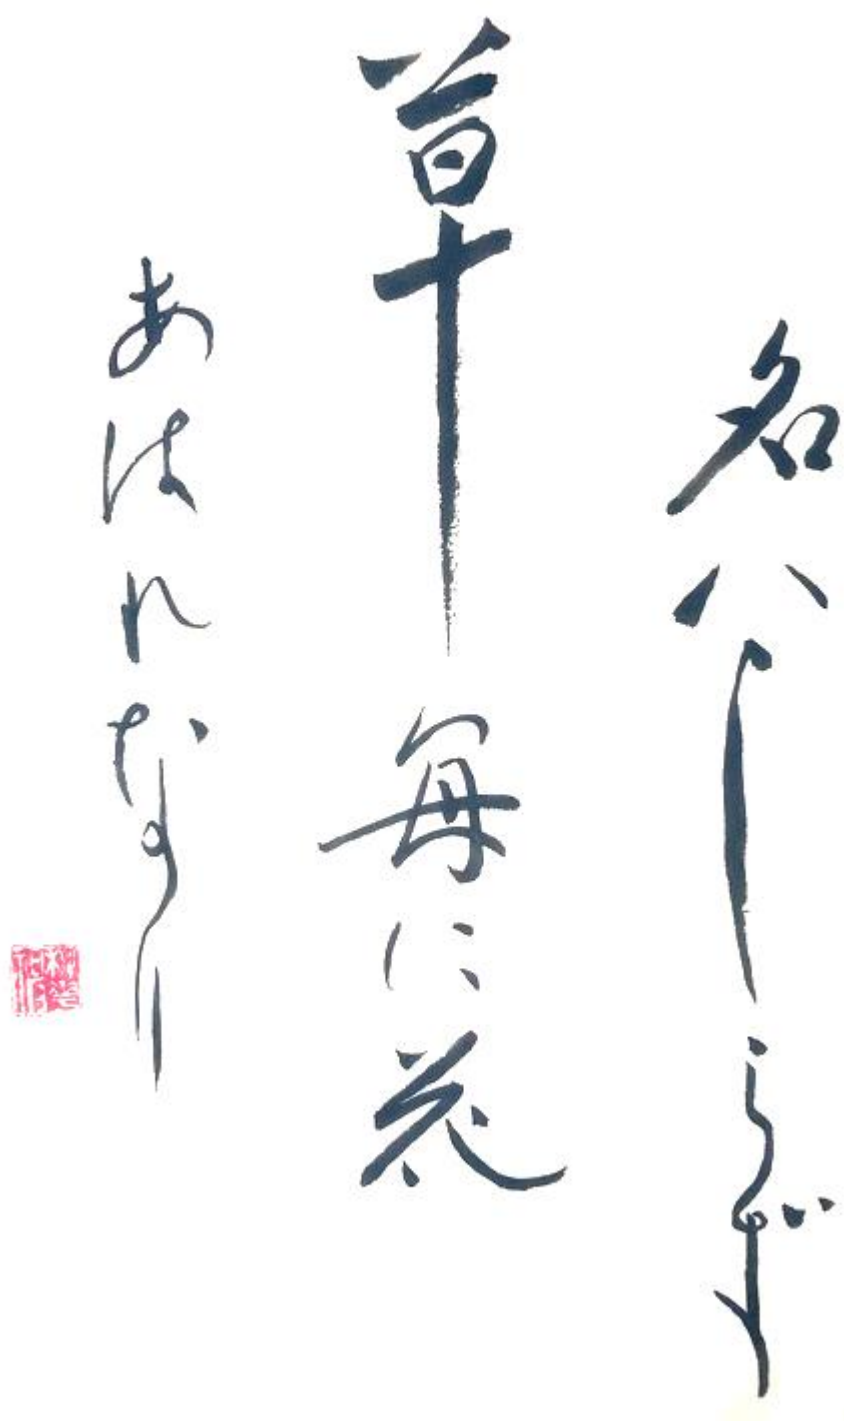 名ハしらず
草毎に花
あはれなり